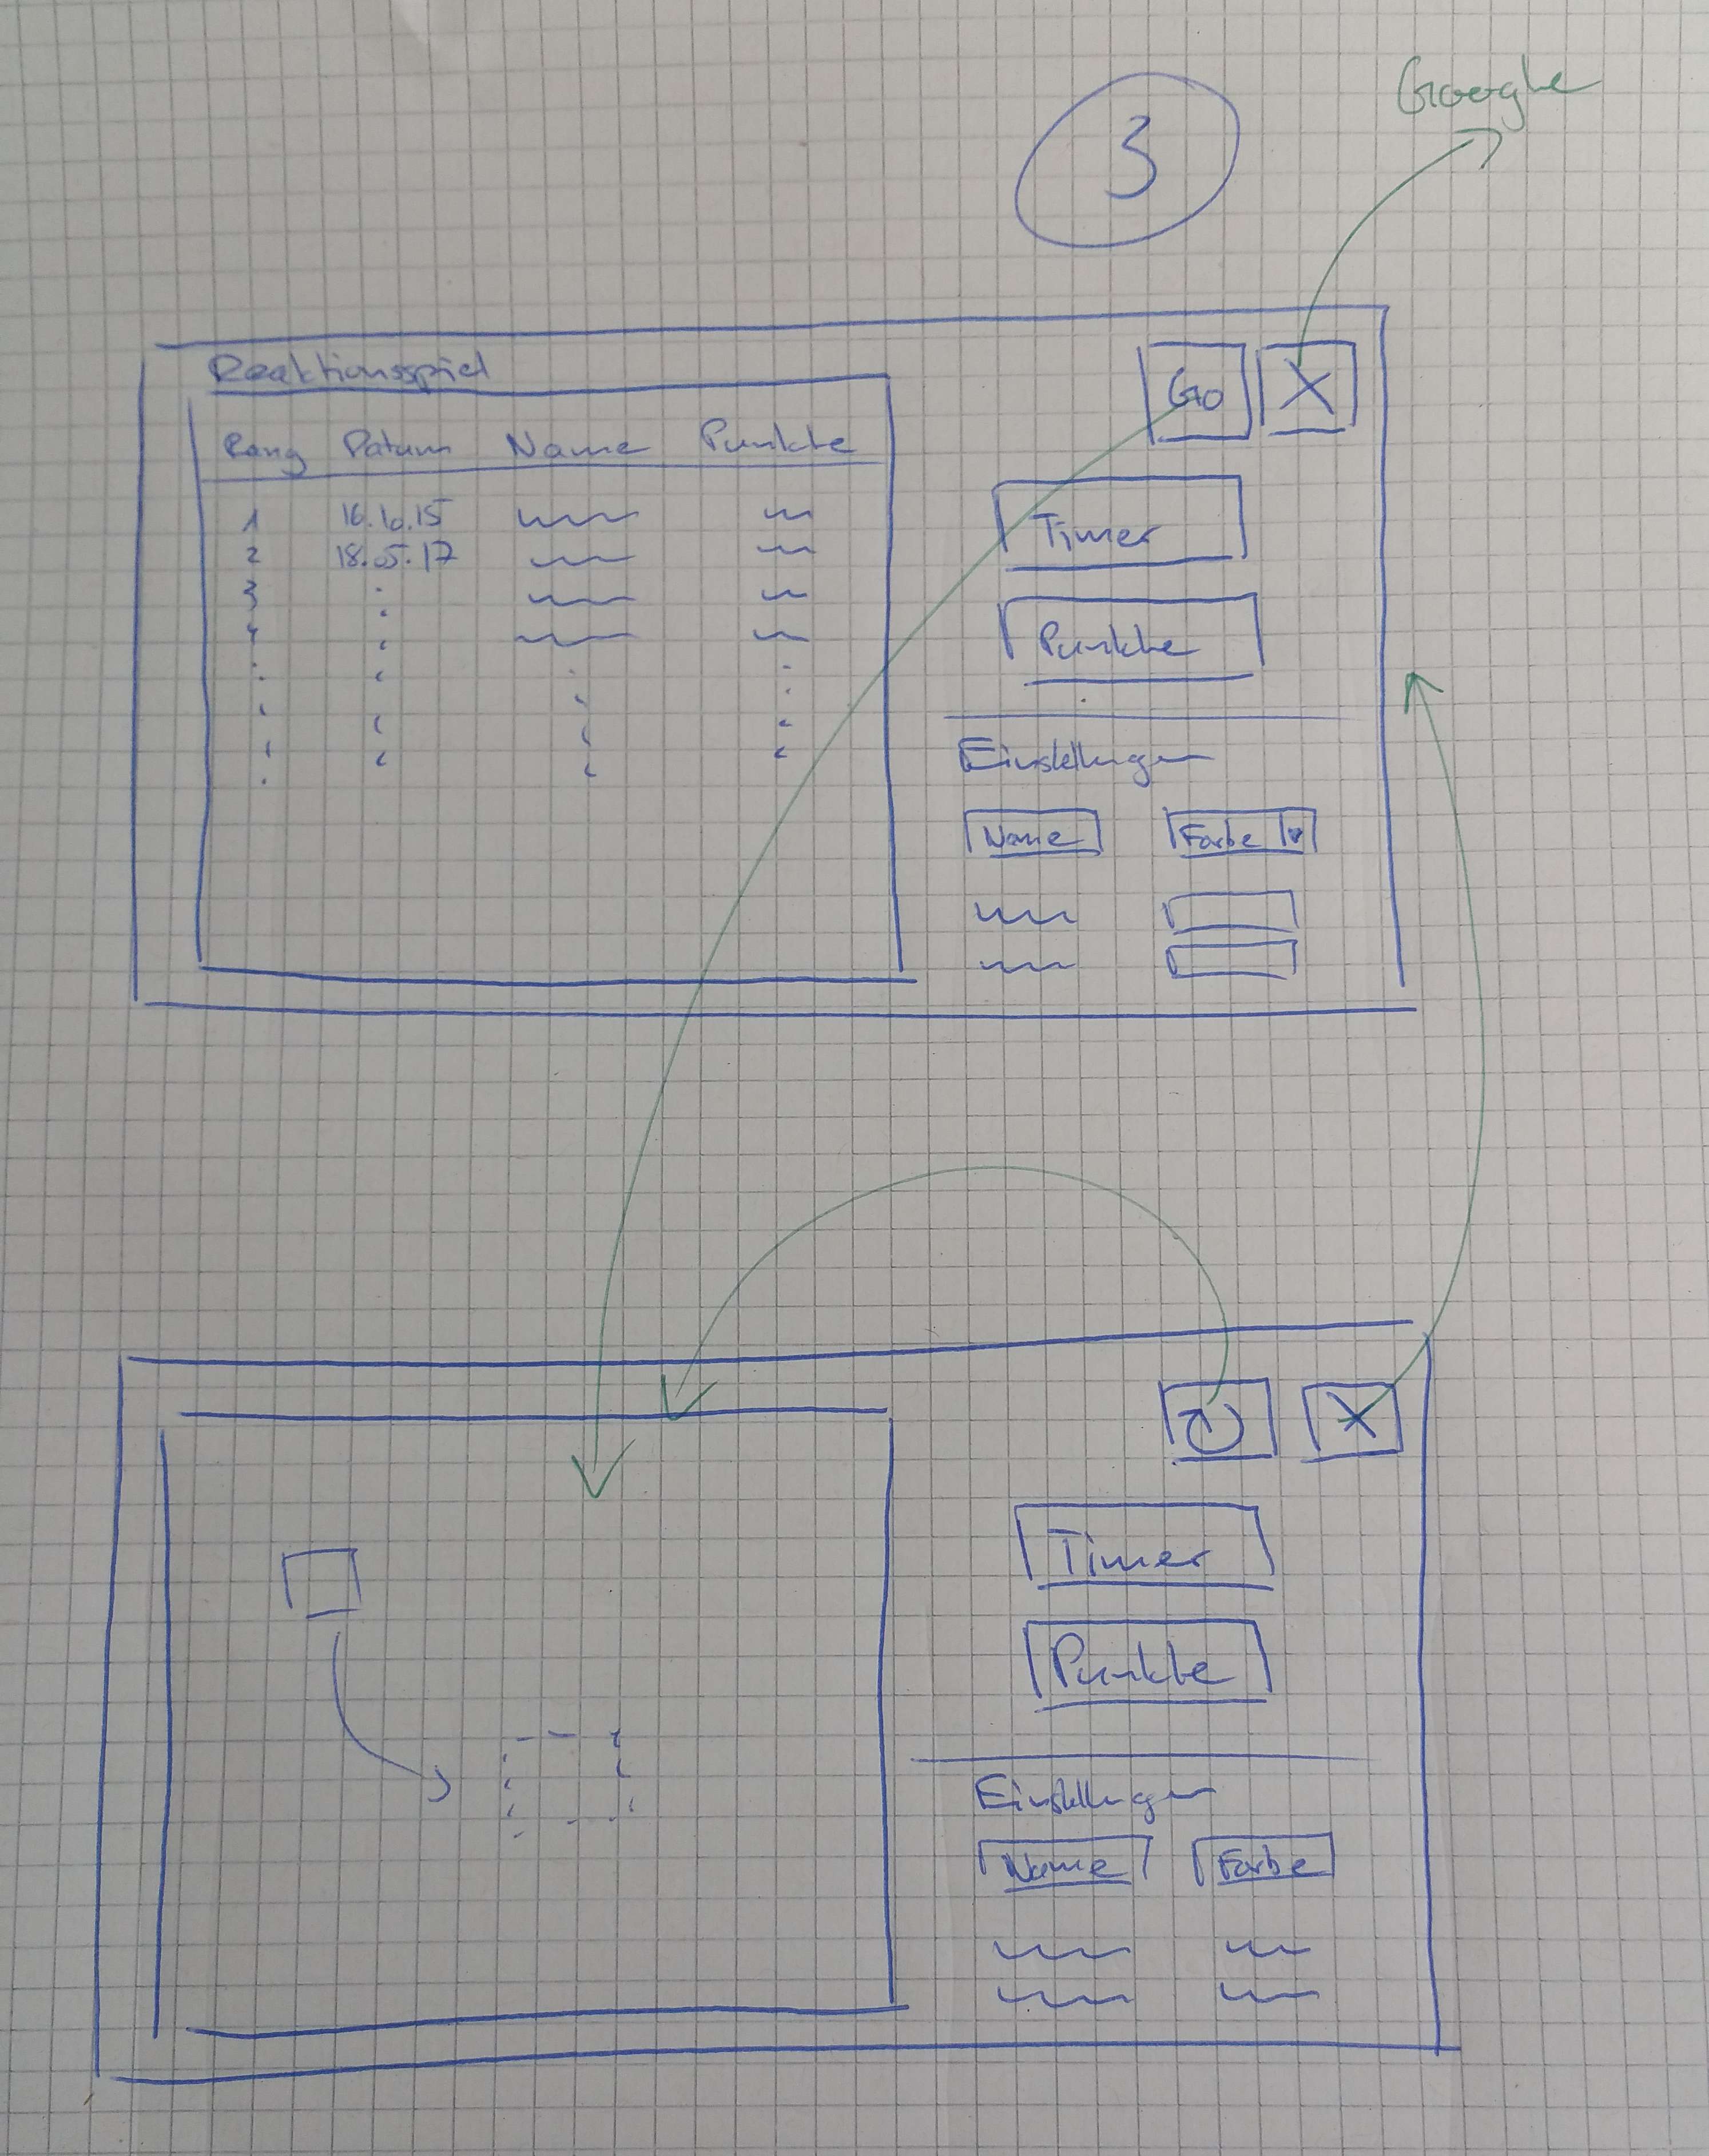 Google
3
Reaktionsspiel
Go X
Rang Datum Name Punkte
1 16.10.15
2 18.05.17
3
4
Timer
Punkte
Einstellungen
Name Farbe
X
Timer
Punkte
Einstellungen
Name Farbe